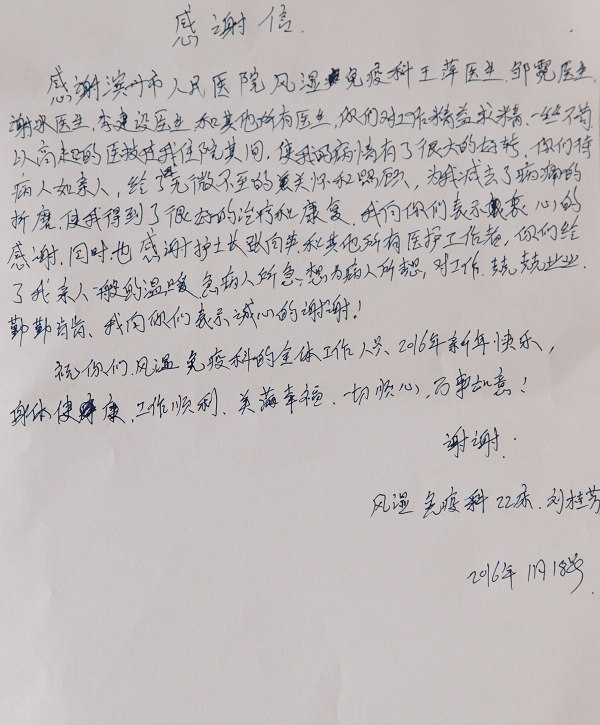 感谢信
感谢滨州市人民医院风湿免疫科王萍医生.邹霓医生.
谢冰医生.李建设医生和其他所有医生,你们对工作精益求精.一丝不苟
以高超的医技在我住院其间,使我的病情有了很大的好转,你们待
病人如亲人,给了无微不至的关怀和照顾,为我减去了病痛的
折磨,使我得到了很好的治疗和康复.我向你们表示衷心的
感谢.同时也感谢护士长 和其他所有医护工作者,你们给
了我亲人般的温暖急病人所急.想为病人所想,对工作.兢兢业业.
勤勤肯肯、我向你们表示诚心的谢谢!
祝你们.风湿免疫科的全体工作人员.2016年新年快乐,
身体健康,工作顺利、美满幸福、一切顺心,万事如意!
谢谢.
风湿免疫科22床.刘桂芳
2016年1月18号.